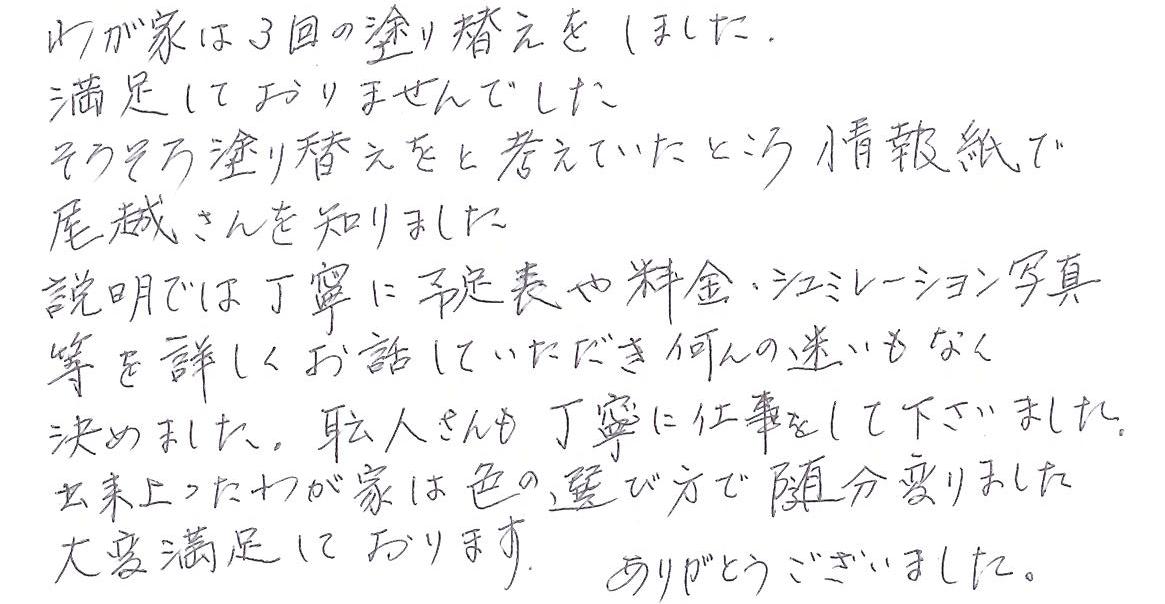 わが家は3回の塗り替えをしました.
満足しておりませんでした
そろそろ塗り替えをと考えていたところ情報紙で
尾越さんを知りました
説明では丁寧に予定表や料金・シュミレーション写真
等を詳しくお話していただき何んの迷いもなく
決めました。職人さんも丁寧に仕事をして下さいました。
出来上ったわが家は色の選び方で随分変りました
大変満足しております.
ありがとうございました。